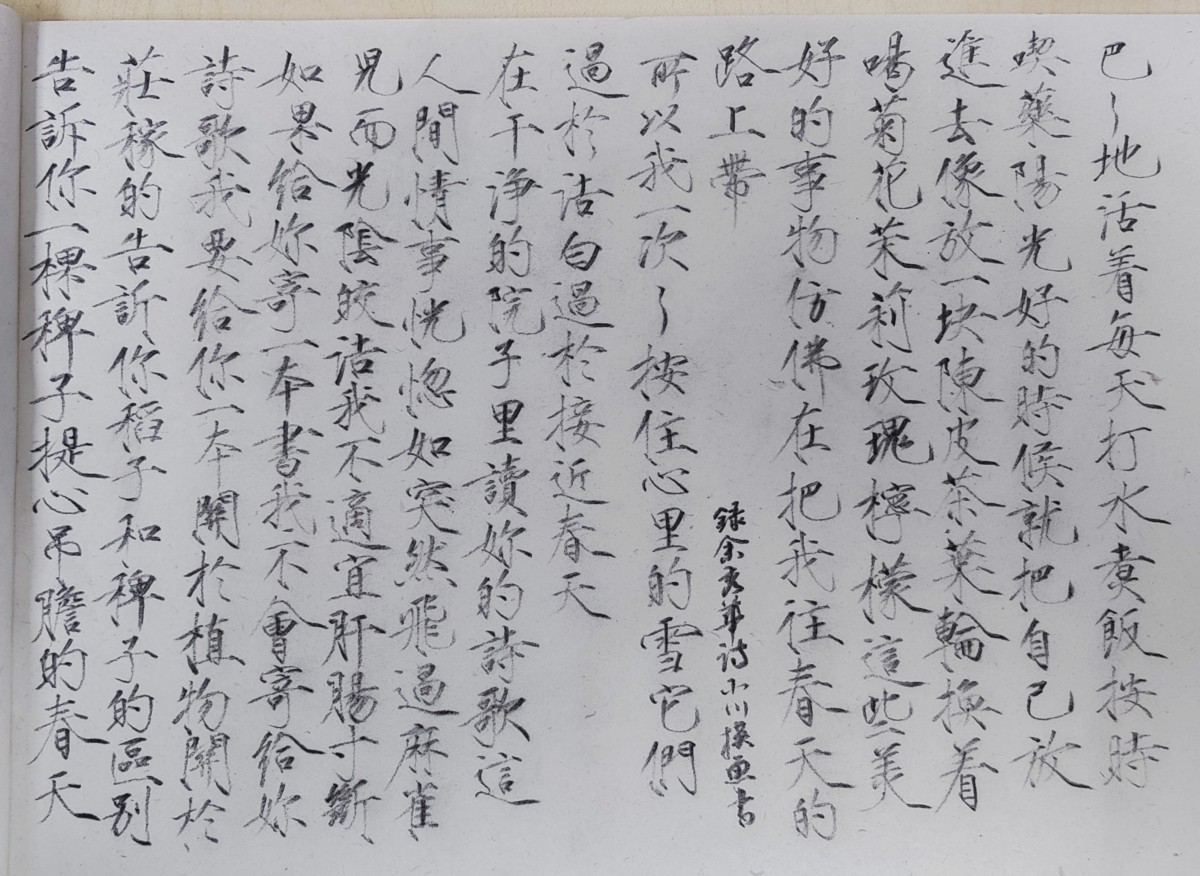 巴々地活着每天打水煮飯按時
喫藥陽光好的時候就把自己放
進去像放一块陳皮茶葉輪換着
喝菊花茉莉玫瑰檸檬這些美
好的事物仿佛在把我往春天的
路上帶
録余秀華詩小川換画書
所以我一次々按住心里的雪它們
過於洁白過於接近春天
在干净的院子里讀妳的詩歌這
人間情事恍惚如突然飛過麻雀
兒而光陰皎洁我不適宜肝腸寸斷
如果给妳寄一本書我不會寄给妳
詩歌我要给你一本關於植物關於
莊稼的告訴你稻子和稗子的區别
告訴你一棵稗子提心吊膽的春天